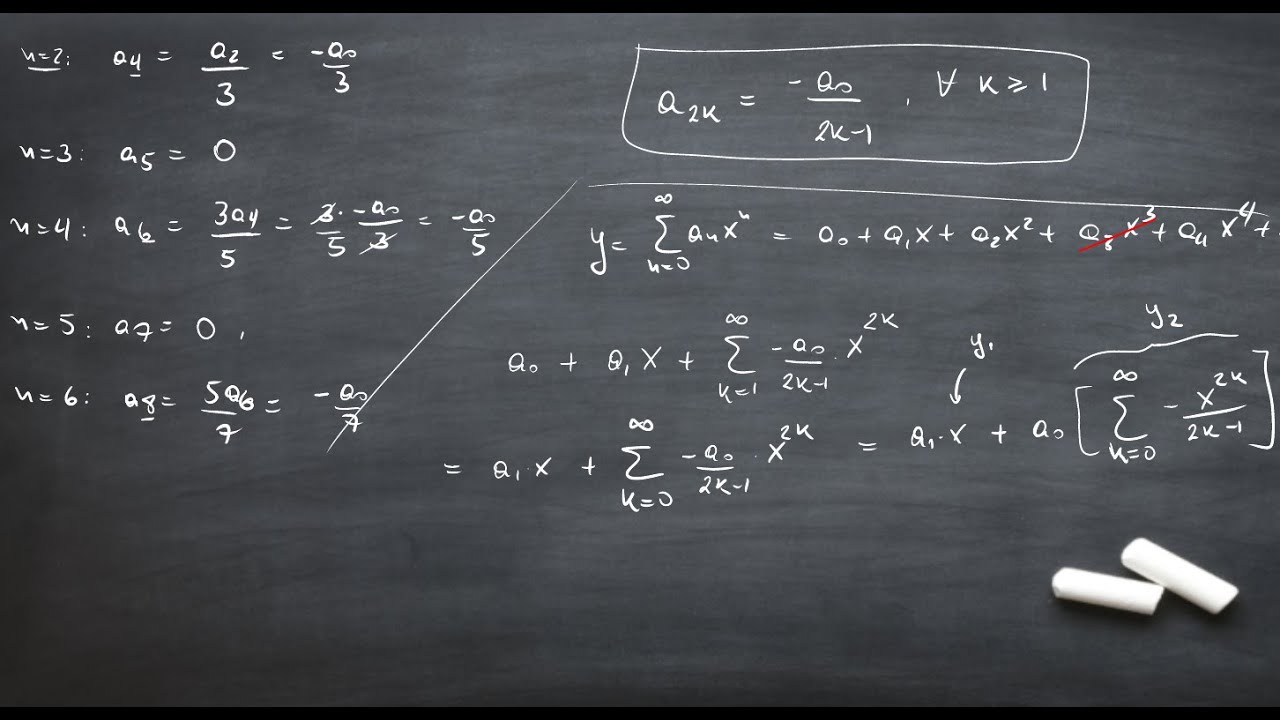 n=2: a₄ = a₂/3 = -a₀/3
n=3: a₅ = 0
n=4: a₆ = 3a₄/5 = 3/5 · -a₀/3 = -a₀/5
n=5: a₇ = 0,
n=6: a₈ = 5a₆/7 = -a₀/7
a₂ₖ = -a₀/(2k-1), ∀ k ≥ 1
y = ∑_{n=0}^{∞} aₙxⁿ = a₀ + a₁x + a₂x² + a₃x³ + a₄x⁴ +
a₀ + a₁x + ∑_{k=1}^{∞} -a₀/(2k-1) · x^{2k}
= a₁·x + ∑_{k=0}^{∞} -a₀/(2k-1) · x^{2k} = a₁·x + a₀ [∑_{k=0}^{∞} -x^{2k}/(2k-1)]
y₁
y₂